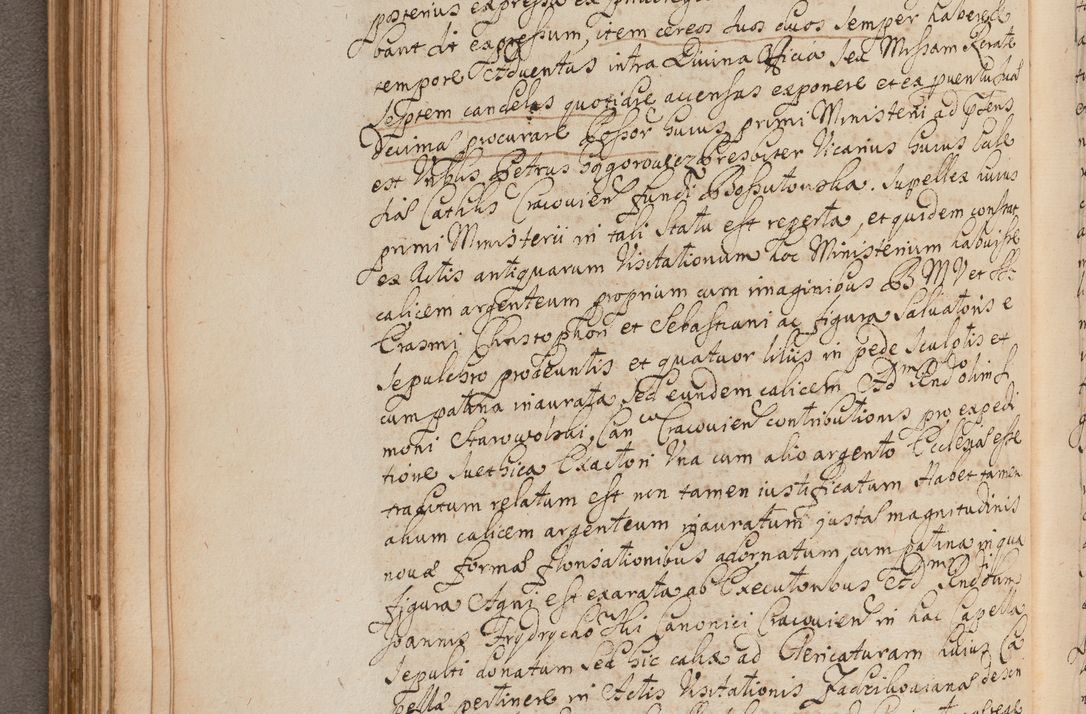 posterius expressa ex
bant et expressum, item cereos duos suos semper habere
tempore Adventus intra Divina officia seu Missam Rorate
septem candelas quotidie accensas exponere et ex proventu sua
Decima procurare Possor huius primi Ministerii ad pñs
est Vrblis Petrus Presbiter Vicarius huius Eccle
siæ Cathlis Cracovien fundi Bossutowska. Supellex huius
primi Ministerii in tali statu est reperta, et quidem constat
ex Actis antiquarum Visitationum hoc Ministerium habuisse
calicem argenteum proprium cum imaginibus B M V et
Erasmi Christophori et Sebastiani ac figura Salvatoris e
sepulchro prodeuntis et quatuor liliis in pede sculptis et
cum patina inaurata sed eundem calicem Adm Rndo olim
moni Starowolski, Canco Cracovien contributionis pro expedi
tione Suethica Exactori Vna cum alio argento Ecclesiæ esse
traditum relatum est non tamen iustificatum Habet tamen
alium calicem argenteum inauratum justæ magnitudinis
novæ formæ florisationibus adornatum cum patina in qua
figura Agni est exarata ab Executoribus Adm Rndi olim
Joannis Frydrycho Canonici Cracovien in hac Capella
sepulti donatum sed hic calix ad Clericaturam huius Ca
pellæ pertinere in Actis Visitationis Zadzikowianæ